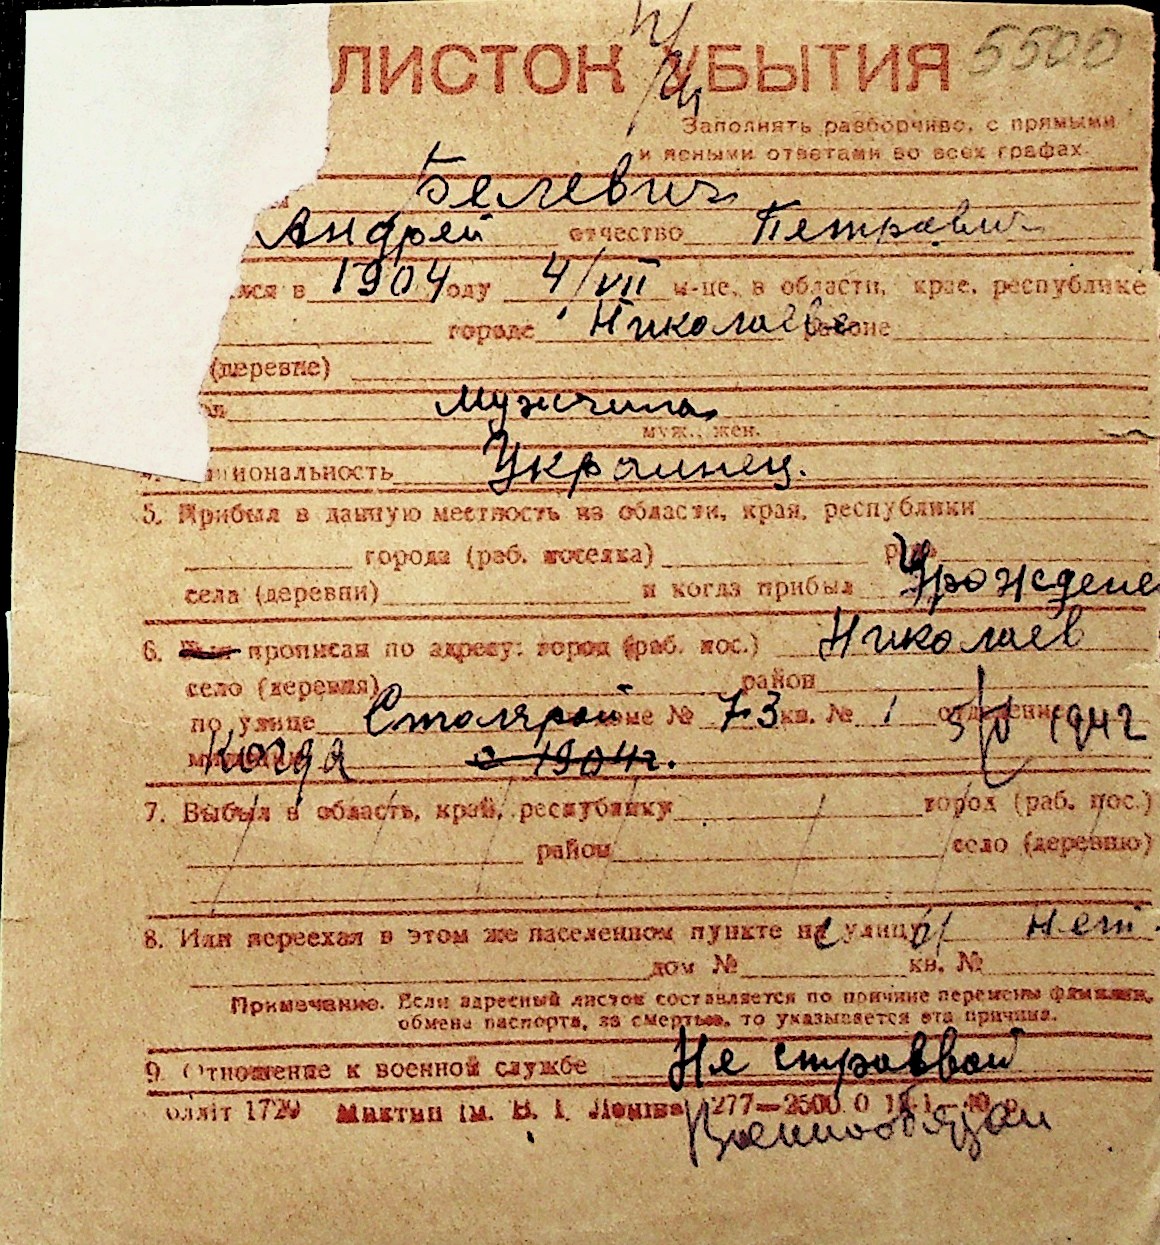 ЛИСТОК УБЫТИЯ 5500
Заполнять разборчиво, с прямыми
и ясными ответами во всех графах.
Белевич
Андрей отчество Петрович
лся в 1904 году 4/VII м-це, в области, крае, республике
городе Николаеве районе
(деревне)
мужчина
муж., жен.
циональность Украинец.
5. Прибыл в данную местность из области, края, республики
города (раб. поселка)
села (деревни) и когда прибыл Урождене
6. прописан по адресу: город (раб. пос.) Николаев
село (деревня) район
по улице Столярой доме № 73 кв. № 1 отделение 1942
Когда с 1904г.
7. Выбыл в область, край, республику город (раб. пос.)
район село (деревню)
8. Или переехал в этом же населенном пункте на улицу нет
дом № кв. №
Примечание. Если адресный листок составляется по причине перемены фамилии,
обмена паспорта, за смертью, то указывается эта причина.
9. Отношение к военной службе Не строввой
Военнообязан